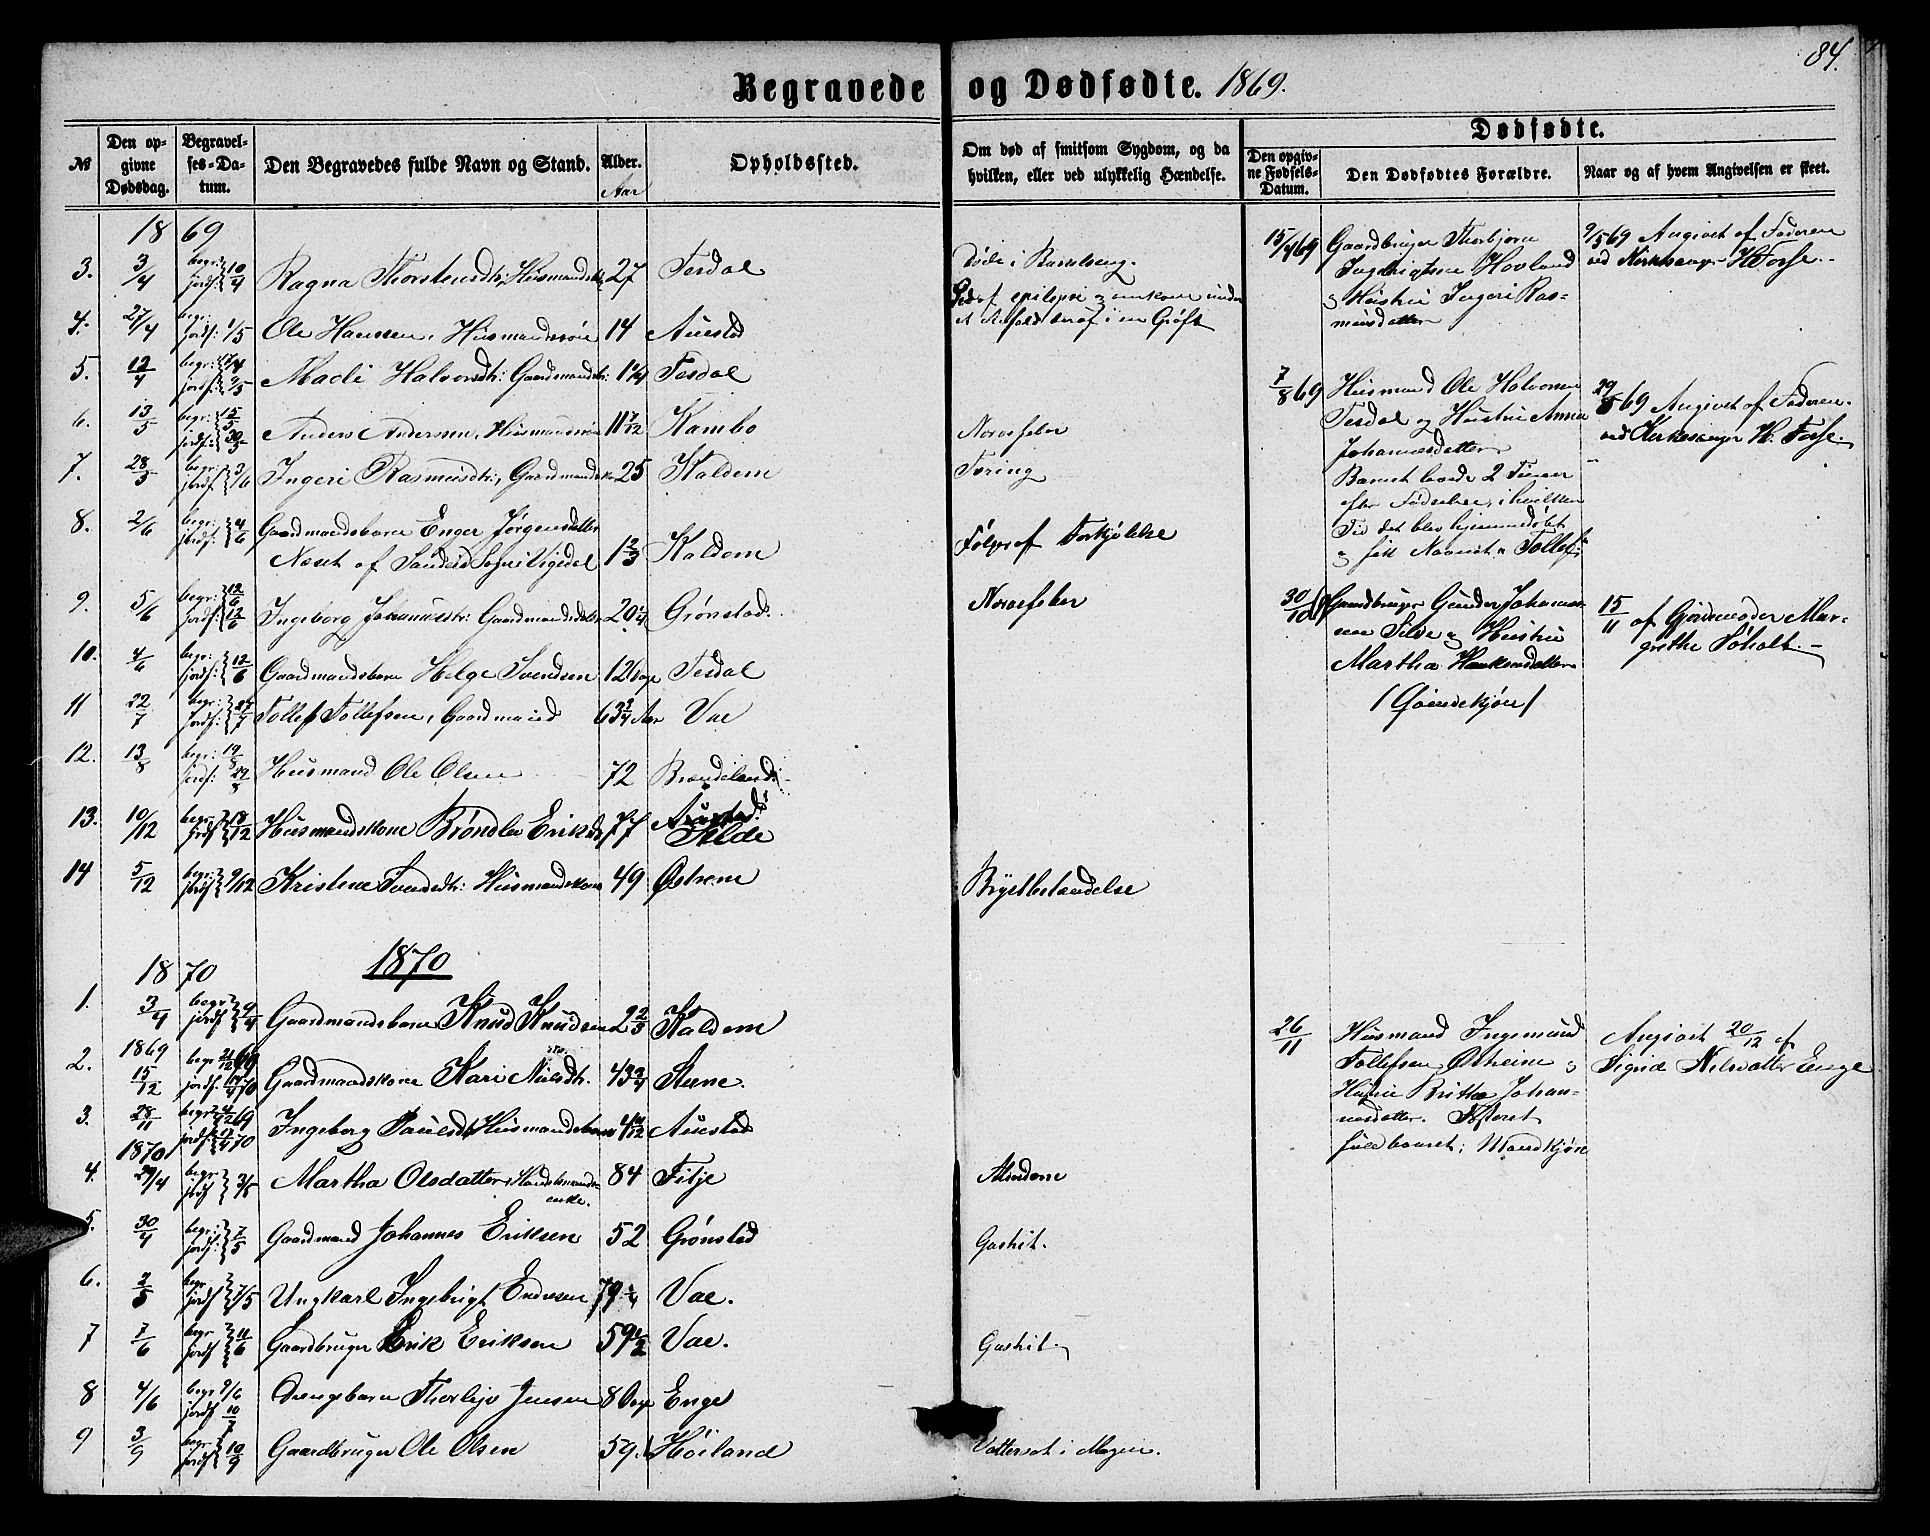 84.
Begravede og Dødfødte. 1869.
Dødfødte.
№
Den opgivne Dødsdag.
Begravelses-Datum.
Den Begravedes fulde Navn og Stand.
Alder.
Aar
Opholdssted.
Om død af smitsom Sygdom, og da hvilken, eller ved ulykkelig Hændelse.
Den opgivne Fødsels-Datum.
Den Dødfødtes Forældre.
Naar og af hvem Angivelsen er skeet.
18 69
3. 3/4 begr: jordf: 10/4 Ragna Thorstensdtr, Husmandsk 27 Tesdal Døde i Barselseng.
4. 27/4 begr: jordf: 1/5 Ole Hansen, Husmandssøn 14 Auestad Død af epilepsi og omkom under et Anfald deraf i en Grøft
5. 12/4 begr: 17/4 jordf: 2/5 Madi Halvorsdtr: Gaardmandsdtr: 1 1/4 Tesdal
6. 13/5 begr: 15/5 jordf: 30/5 Anders Andersen, Husmandssøn 11 7/12 Kambo Nervefeber
7. 28/5 begr: jordf: 3/6 Ingeri Rasmusdtr:, Gaardmandskone 25 Kaldem Tæring
8. 2/6 begr: jordf: 4/6 Gaardmandsbarn Enger Jørgensdatter
Næset af Sandeid Sogn i Vigedal 1 2/3 Kaldem Følger af Forkjølelse
9. 5/6 begr: 12/6 jordf: 12/6 Ingeborg Johannesdtr: Gaardmandsdatter 20 1/4 Grønstad. Nervefeber
10. 4/6 begr: jordf: 12/6 Gaardmandsbarn Helge Svendsen 12 Dage Tesdal
11 22/7 begr: jordf: Tollef Tollefsen, Gaardmand 63 3/4 Aar Vae
12. 13/8 begr: 19/8 jordf: 29/8 Husmand Ole Olsen 72 Brændeland
13. 10/12 begr: jordf: 18/12 Husmandskone Brønsla Eriksd 77 Auestad. Silde
14 5/12 begr: jordf: 9/12 Kristine Svendsdtr: Husmandskone 49 Østrem Brystbetændelse
15/4 69 Gaardbruger Thorbjørn
Ingebrigtsen Hovland
og Hustru Ingeri Ras-
musdatter
9/5 69 Angivet af Faderen
ved Kirkesanger H. Forse.
7/8 69 Husmand Ole Halvorsen
Tesdal og Hustru Anna
Johannesdatter
Barnet levede 2 Timer
efter Fødselen, i hvilken
Tid det blev hjemmedøbt
og fik Navnet "Tollef"
29/8 69 Angivet af Faderen
ved Kirkesanger H. Forse.
30/10 Gaardbruger Gunder Johannes-
sen Silde og Hustru
Martha Haakensdatter
(Qvindekjøn)
15/11 af Gjordemoder Mar-
grethe Søholt.
1870
18 70
1. 3/4 begr jordf 9/4 Gaardmandsbarn Knud Knudsen 2 2/3 Kaldem
2. 1869 15/12 begr 21/12 69 jordf. 70 Gaardmandskone Kari Nielsdtr. 43 3/4 Stene.
3. 28/11 begr 69 jordf 70 Ingeborg Paulsdtr Husmandsbarn 4 Auestad
1870
4. 29/4 begr jordf 3/5 Martha Olsdatter, Handelsmands-
enke. 84 Filje Alderdom
5. 30/4 begr: jordf: 7/5 Gaardmand Johannes Eriksen 52 Grønstad Gastrit.
6. 2/5 begr jordf 7/5 Ungkarl Ingebrigt Endresen 79 Vae.
7 7/6 begr jordf 11/6 Gaardbruger Erik Eriksen 59 1/2 Vae. Gastrit.
8 4/6 begr 9/6 jordf 10/7 Drengebarn Thorlejv Jensen 8 Dage Enge
9 3/9 begr jordf 10/9 Gaardbruger Ole Olsen 59. Høiland Vattersot i Maven.
26/11 Husmand Ingemund
Tollefsen Østheim og
Hustru Brithe Johan-
nesdatter. Fosteret
fuldbaaret; Mandkjøn
Angivet 20/12 af
Sigrid Nilsdatter Enge